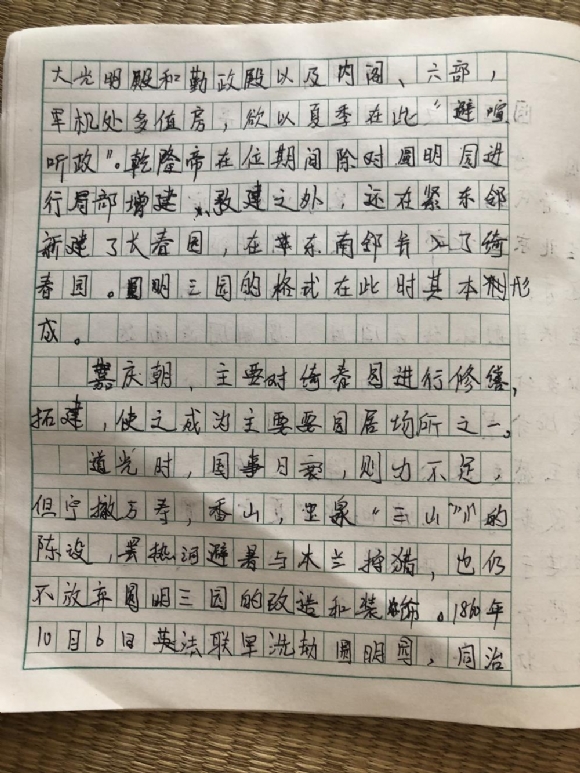 大光明殿和勤政殿以及内阁、六部，
军机处多值房，欲以夏季在此“避喧
听政”。乾隆帝在位期间除对圆明园进
行局部增建、改建之外，还在紧东邻
新建了长春园，在东南邻并入了绮
春园。圆明三园的格式在此时其本形
成。
嘉庆朝，主要对绮春园进行修缮，
拓建，使之成为主要要园居场所之一。
道光时，国事日衰，则力不足，
但宁撤万寿，香山，玉泉“三山”的
陈设，罢热河避暑与木兰狩猎，也仍
不放弃圆明三园的改造和装饰。1860年
10月6日英法联军洗劫圆明园，同治